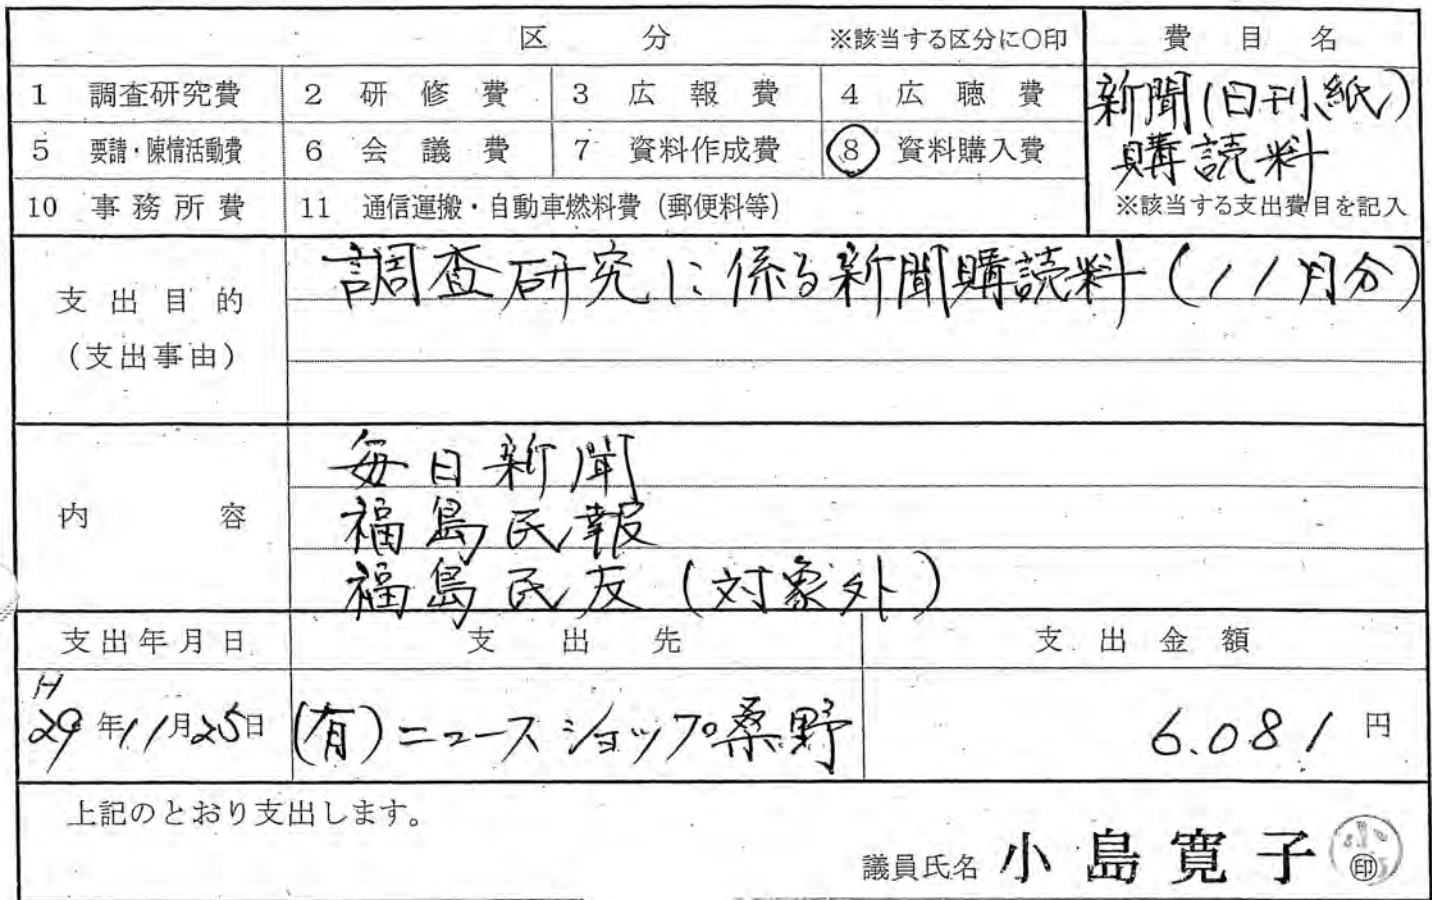 区 分 ※該当する区分に○印 費目名
1 調査研究費 2 研修費 3 広報費 4 広聴費 新聞(日刊紙)
5 要請・陳情活動費 6 会議費 7 資料作成費 8 資料購入費 購読料
10 事務所費 11 通信運搬・自動車燃料費(郵便料等) ※該当する支出費目を記入
支出目的 調査研究に係る新聞購読料(11月分)
(支出事由)
毎日新聞
内容 福島民報
福島民友(対象外)
支出年月日 支出先 支出金額
H29年11月25日 (有)ニュースショップ桑野 6.081円
上記のとおり支出します。
議員氏名 小島寛子 印